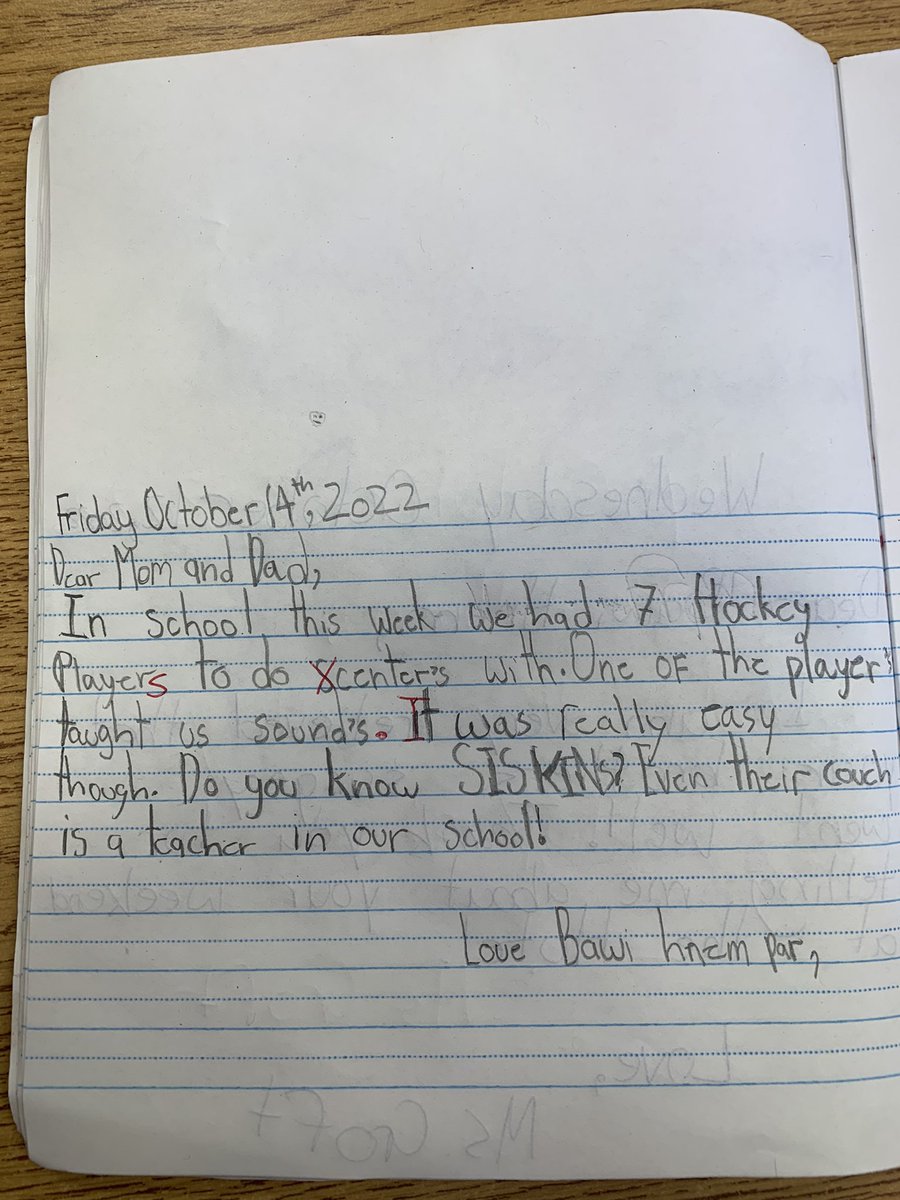 Friday October 14th, 2022
Dear Mom and Dad,
In school this week we had 7 Hockey
Players to do center's with. One of the player's
taught us sound's. It was really easy
though. Do you know SISKINS? Even their couch
is a teacher in our school!
Love Bawi hnem par,